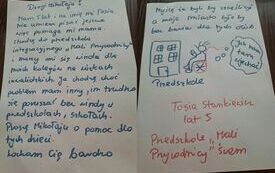 Drogi Mikołaju!
mi Tosia
Nie umiem pisać jeszcze
więc pomaga mi mama.
Chodzę do przedszkola
integracyjnego „Mali Przyrodnicy"
i marzy mi się winda dla
moich kolegów na wózkach
inwalidzkich. Ja chodzę choć
problem mam inny, im trudno
się poruszać bez windy w
przedszkolach, szkołach.
Proszę Mikołaju o pomoc dla
tych dzieci.
Kocham Cię bardzo
Myślę że byli by szczęśliwi
a moje miasto było by
bez barier dla tych osób.
Jak mam
tam
wjechać
Przedszkole
Tosia Stankiewicz
lat 5
Przedszkole „Mali
Przyrodnicy"